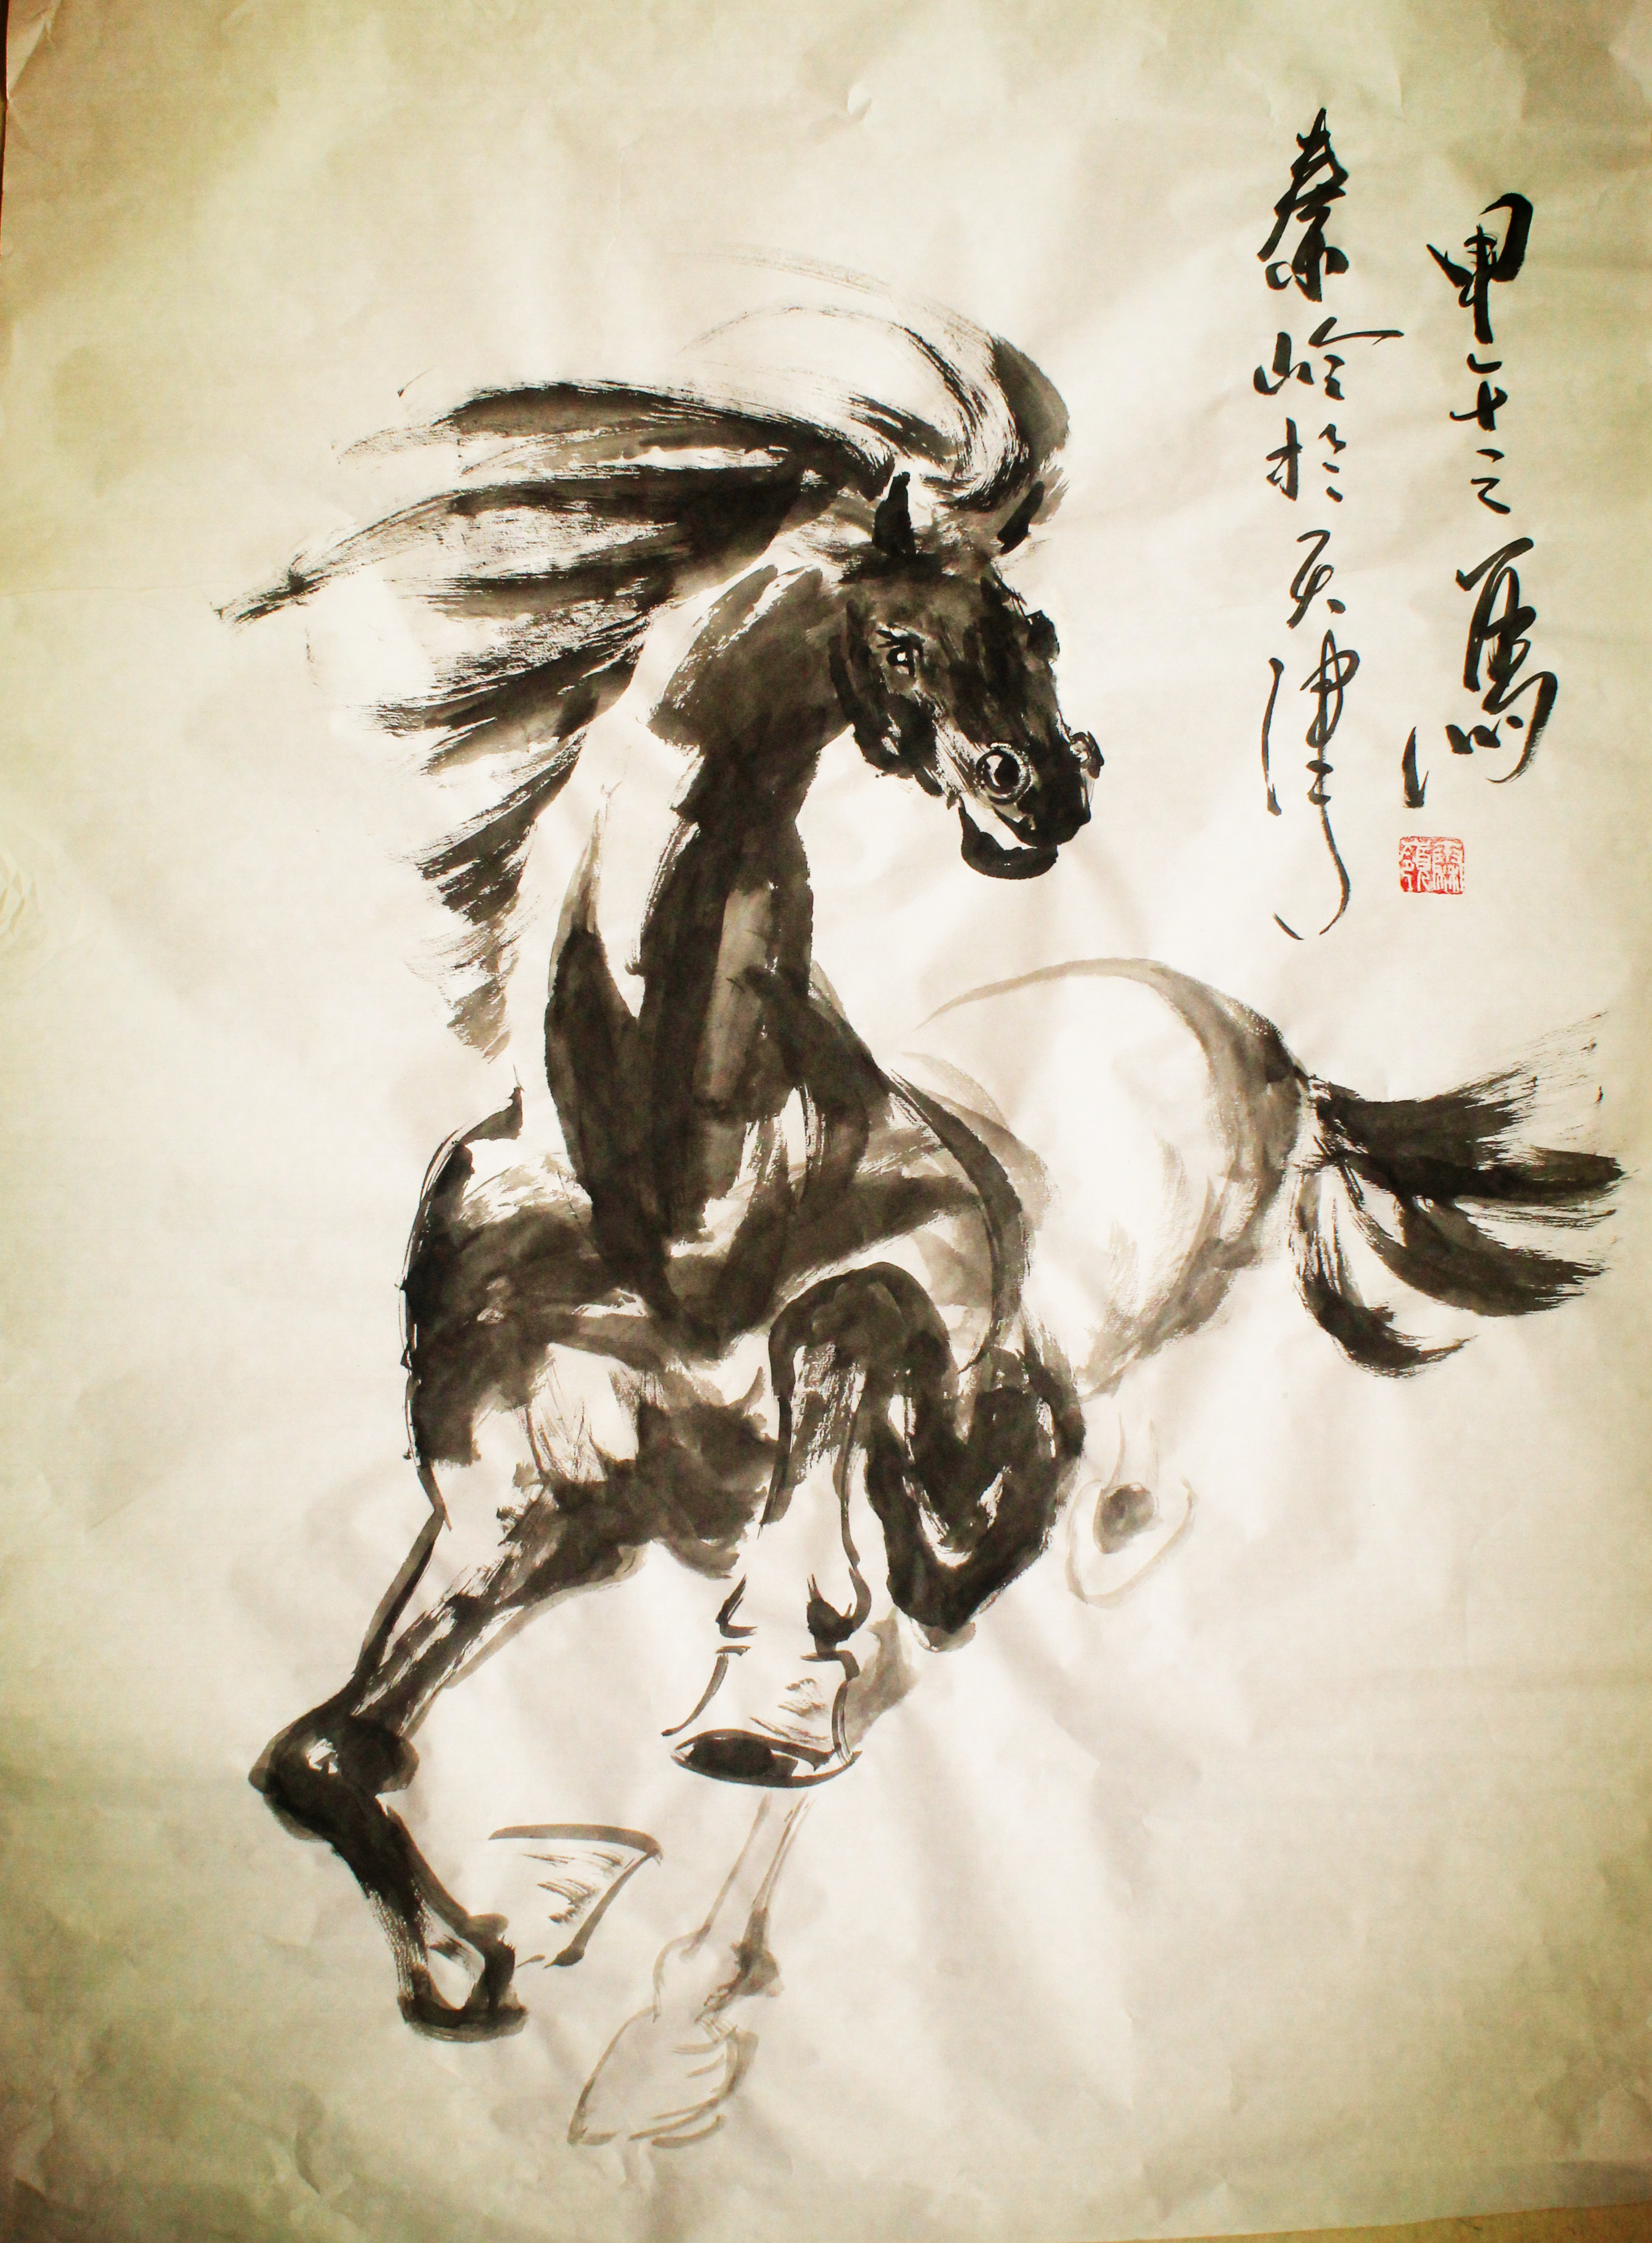 甲午之馬
秦岭於天津